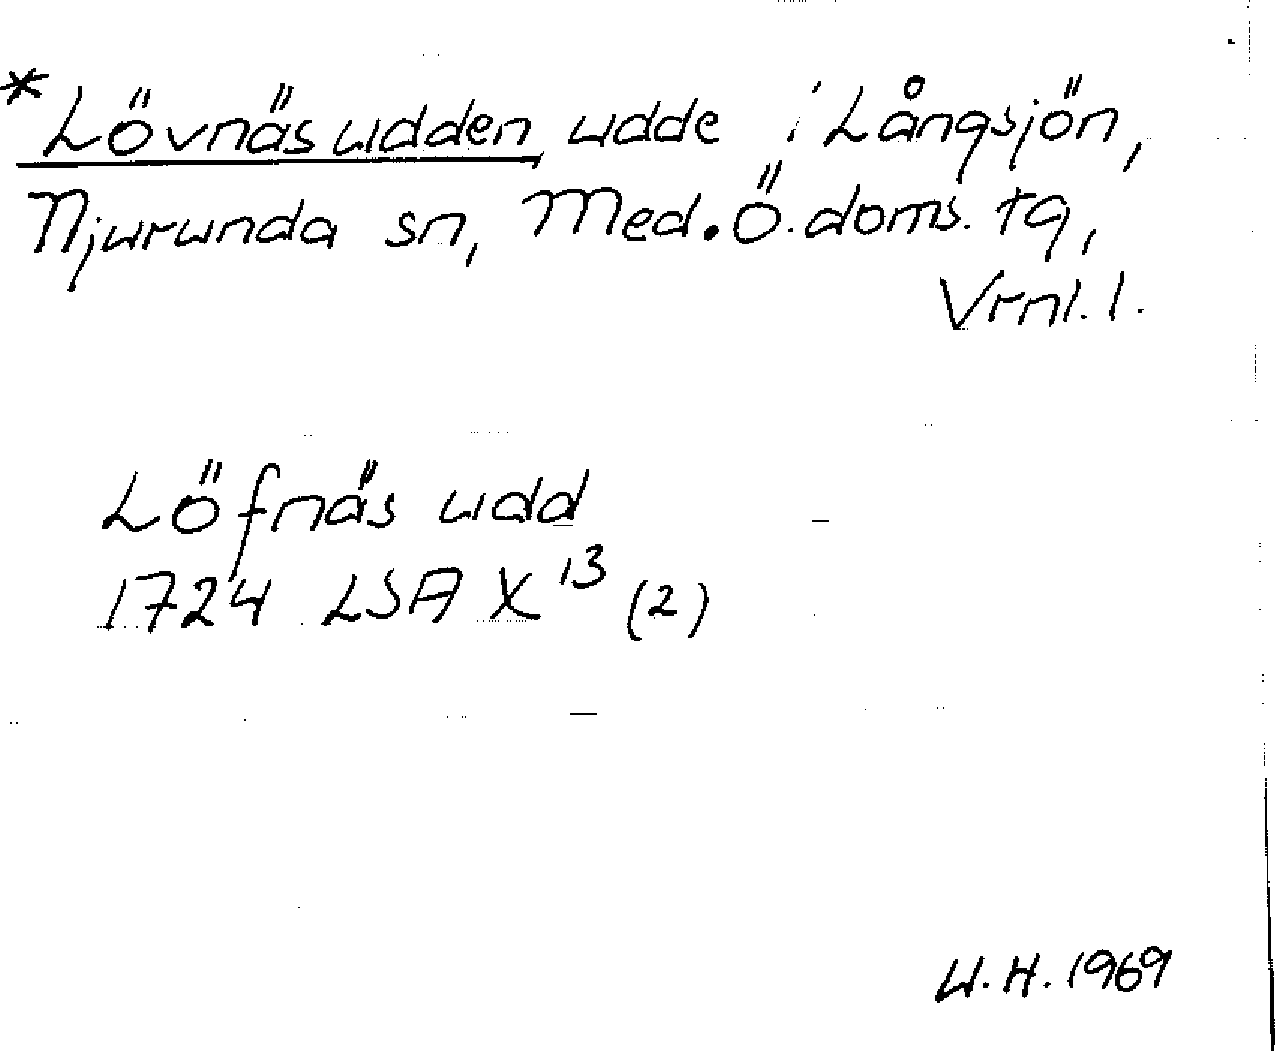 *Lövnäsudden, udde i Långsjön,
Njurunda sn, Med. Ö. doms. tg,
Vrnl. l.
Löfnäs udd
1724 LSA X 13 (2)
U.H. 1969